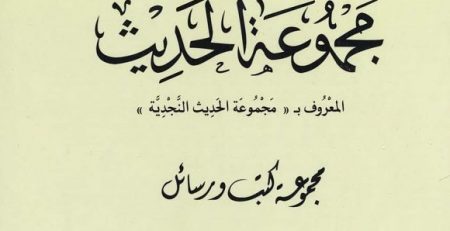 مَجْمُوعَة الحَدِيث
المَعْرُوف بـ « مَجْمُوعَة الحَدِيث النَّجْدِيَّة »
مجموعة كتب ورسائل